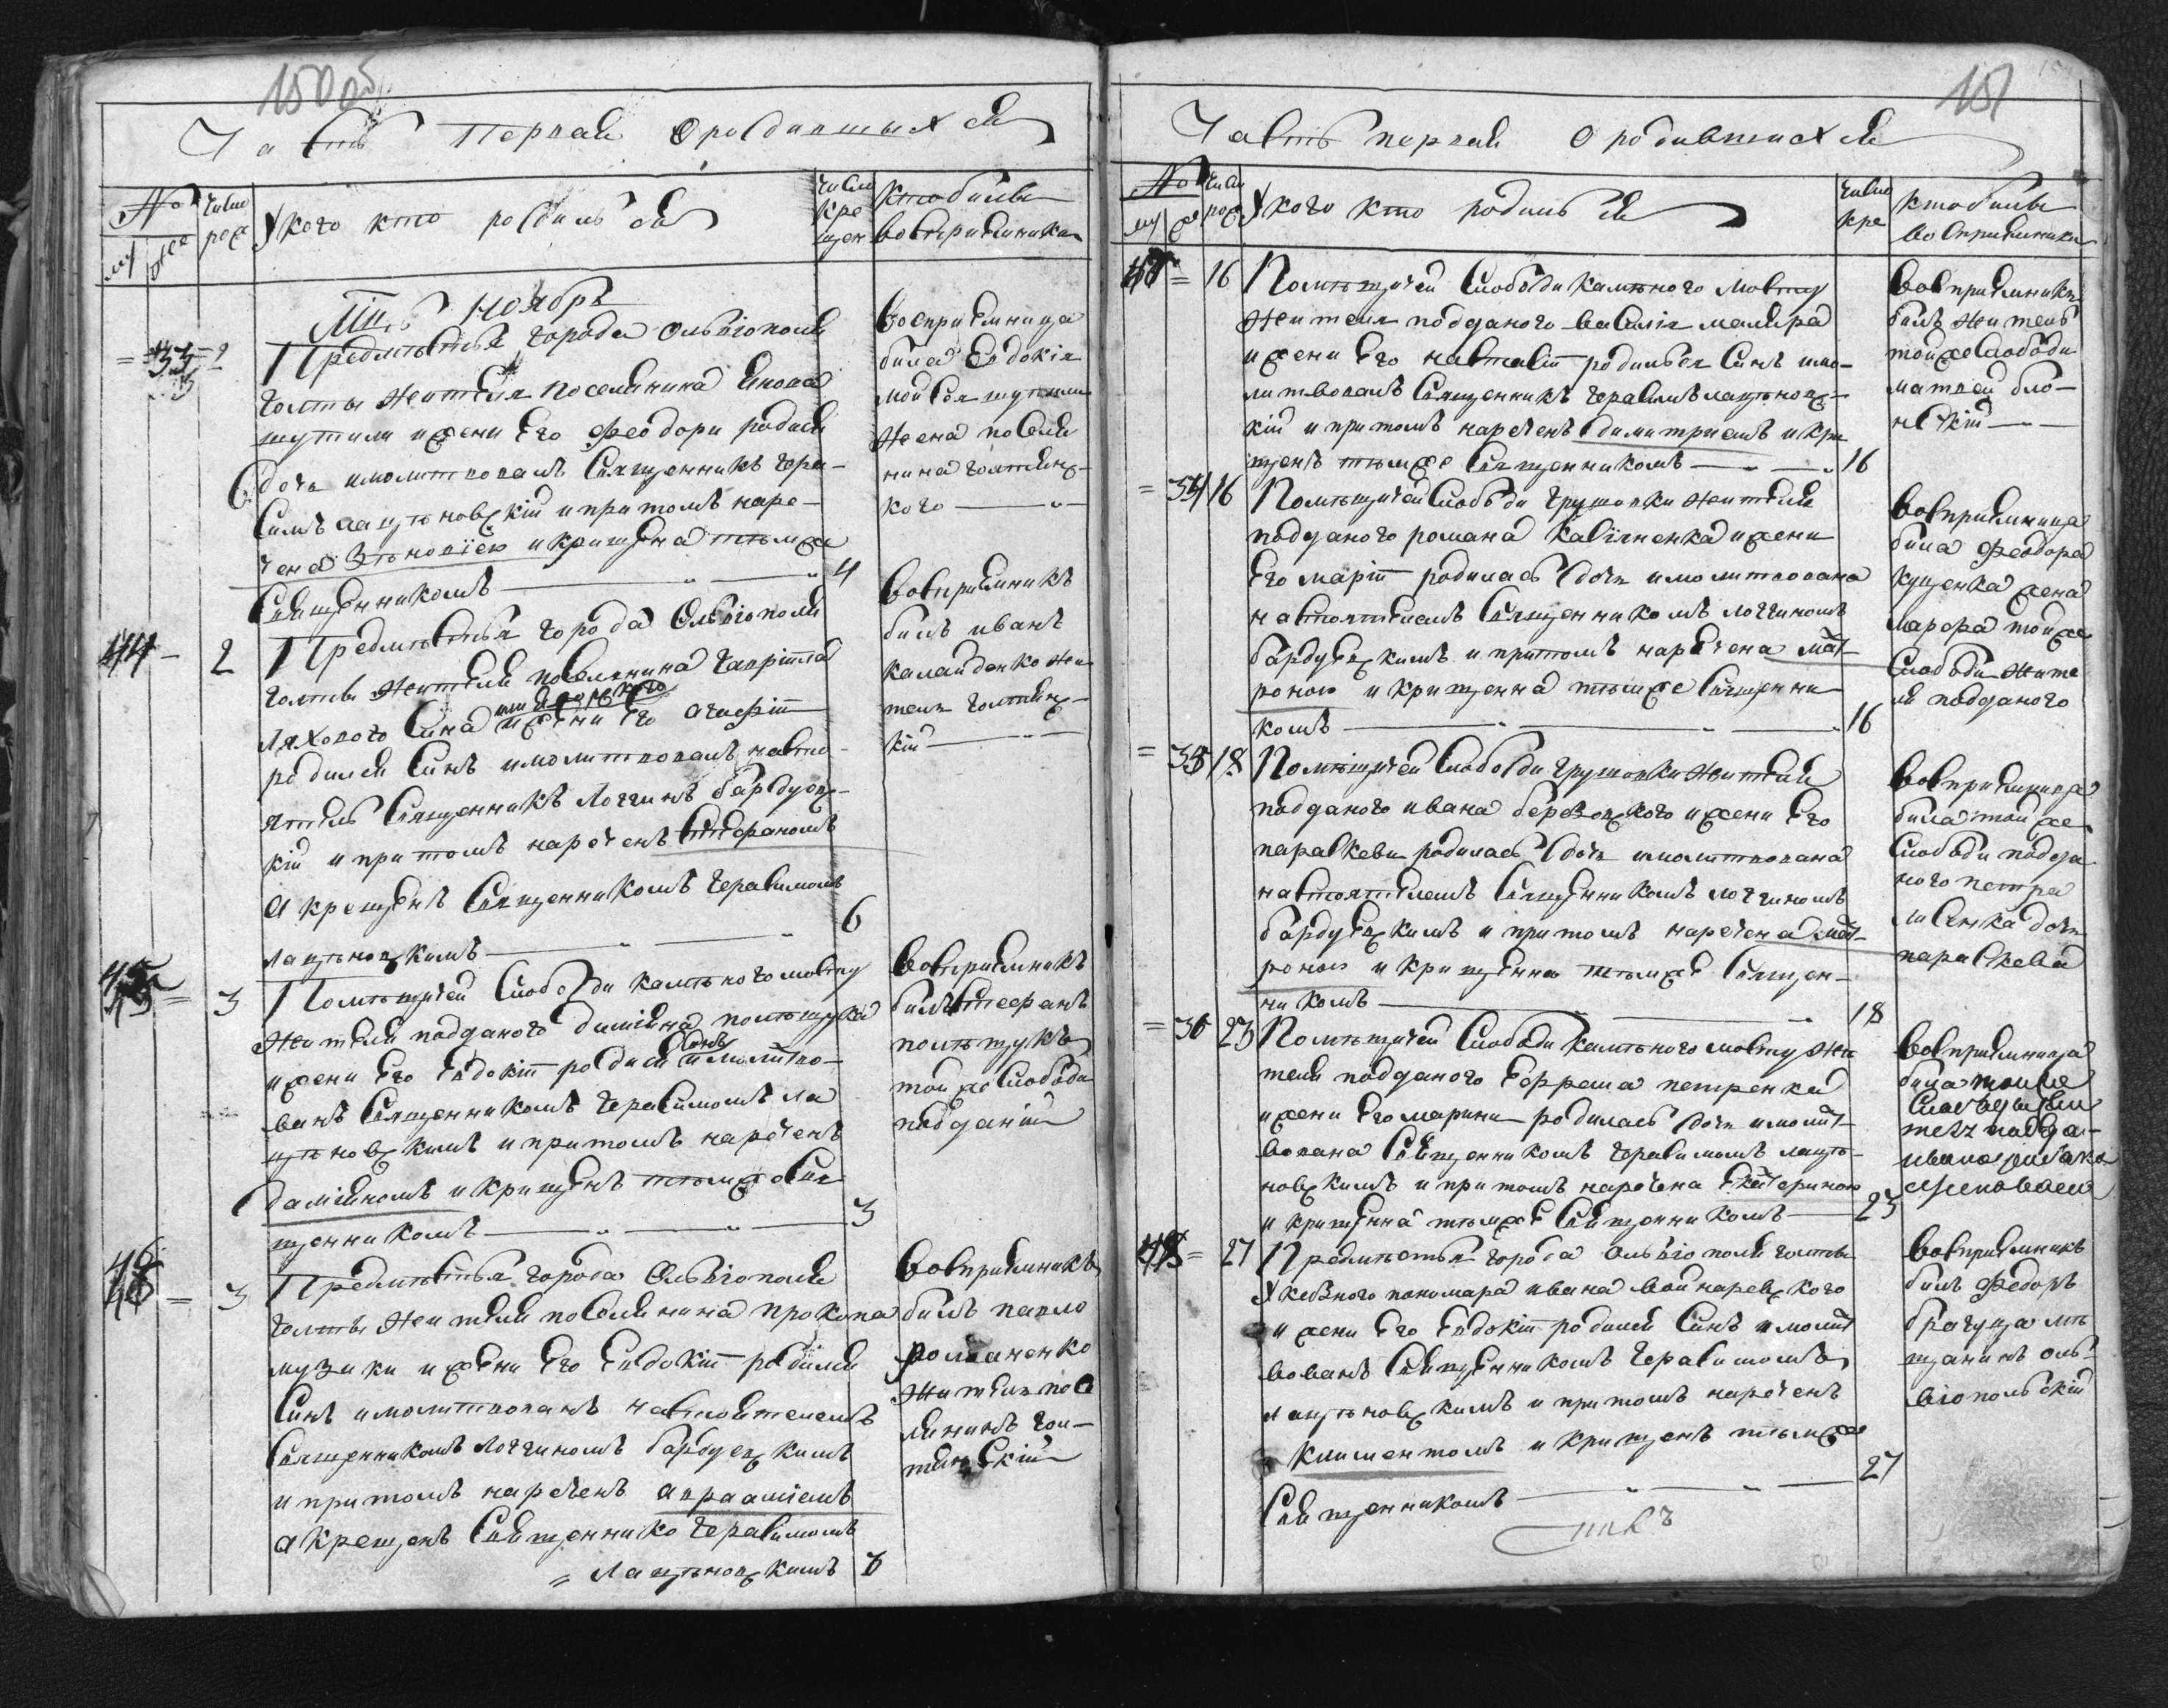 150 об
Часть первая о родившыхся
№
число рож
У кого кто родился
число крещен
кто были восприемники
му
жен
Мц. Ноябрь
33
2
Предместья города Ольвиополя
Голты жителя поселянина
и жени его Феодори родися
дочь и молитвовалъ священникъ Гера-
симъ Лацѣновскій и при томъ наре-
чена Зѣновіею и крищена тѣмже
священникомъ
4
Восприемница
била Евдокія
жена поселя
нина голтянс-
кого
44
2
Предместья города Ольвіополя
Голты жителя поселянина Гавріила
Ляхового сина и жени его Агафіи
родился синъ и молитвовалъ насто-
ятель священникъ Логгинъ Бардуец-
кій и при томъ нареченъ Стефаномъ
а крещенъ священникомъ Герасимомъ
Лацѣновскимъ
6
восприемникъ
билъ иванъ
калайденко жи
тель голтянс-
кій
45
3
Помѣщичей слободи Камѣного мосту
жителя подданого Даміяна полѣщука
и жени его Евдокіи родися синъ и молитво-
ванъ священникомъ Герасимомъ Ла
цѣновскимъ и при томъ нареченъ
Даміяномъ и крищенъ тѣмже свя
щенникомъ
3
восприемникъ
билъ Стефанъ
полѣщукъ
той же слободи
подданій
46
3
Предместья города Ольвіополя
Голты жителя поселянина Прокопа
музики и жени его Евдокіи родился
синъ и молитвованъ настоятелемъ
священникомъ Логгиномъ Бардуецкимъ
и при томъ нареченъ Аврааміемъ
а крещенъ священнико Герасимомъ
Лацѣновскимъ
восприемникъ
билъ павло
романенко
житель посе
лянинъ гол-
тянскій
151
Часть первая о родившихся
№
число рож
У кого кто родился
число кре
кто были восприемники
му
47
16
Помѣщичей слободи Камѣного мосту
жителя подданого Василія маляра
и жени его Настасіи родился синъ и мо-
литвовалъ священникъ Герасимъ Лацѣновс-
кій и при томъ нареченъ Димитриемъ и кри
щенъ тѣмже священникомъ
16
восприемникъ
билъ житель
тойже слободи
матвей бло-
нскій
34
16
Помѣщичей слободи Грушовки жителя
подданого романа и жени
его маріи родилась дочь и молитвована
настоятелемъ священникомъ Логгиномъ
Бардуецкимъ и при томъ наречена Мат-
роною и крищенна тѣмже священни-
комъ
16
восприемница
била Феодора
куценка жена
тойже
слободи жите
ля подданого
35
18
Помѣщичей слободи Грушовки жителя
подданого ивана березовского и жени его
параскеви родилась дочь и молитвована
настоятелемъ священникомъ Логгиномъ
Бардуецкимъ и при томъ наречена Мат-
роною и крищенна тѣмже священ-
никомъ
18
восприемница
била той же
слободи подда
ного петра
дочь
параскева
36
23
Помѣщичей слободи Камѣного мосту жи
теля подданого Ефрема петренка
и жени его марини родилась дочь и молит-
вована священникомъ Герасимомъ Лацѣ-
новскимъ и при томъ наречена Екатериною
и крищенна тѣмже священникомъ
23
восприемница
била тойже
48
27
Предместья города Ольвіополя Голты
ивана войнаровского
и жени его Евдокіи родился синъ и молит
вованъ священникомъ Герасимомъ
Лацѣновскимъ и при томъ нареченъ
Климентомъ и крищенъ тѣмже
священникомъ
27
восприемникъ
билъ Федоръ
мѣ
щанинъ оль-
віопольскій